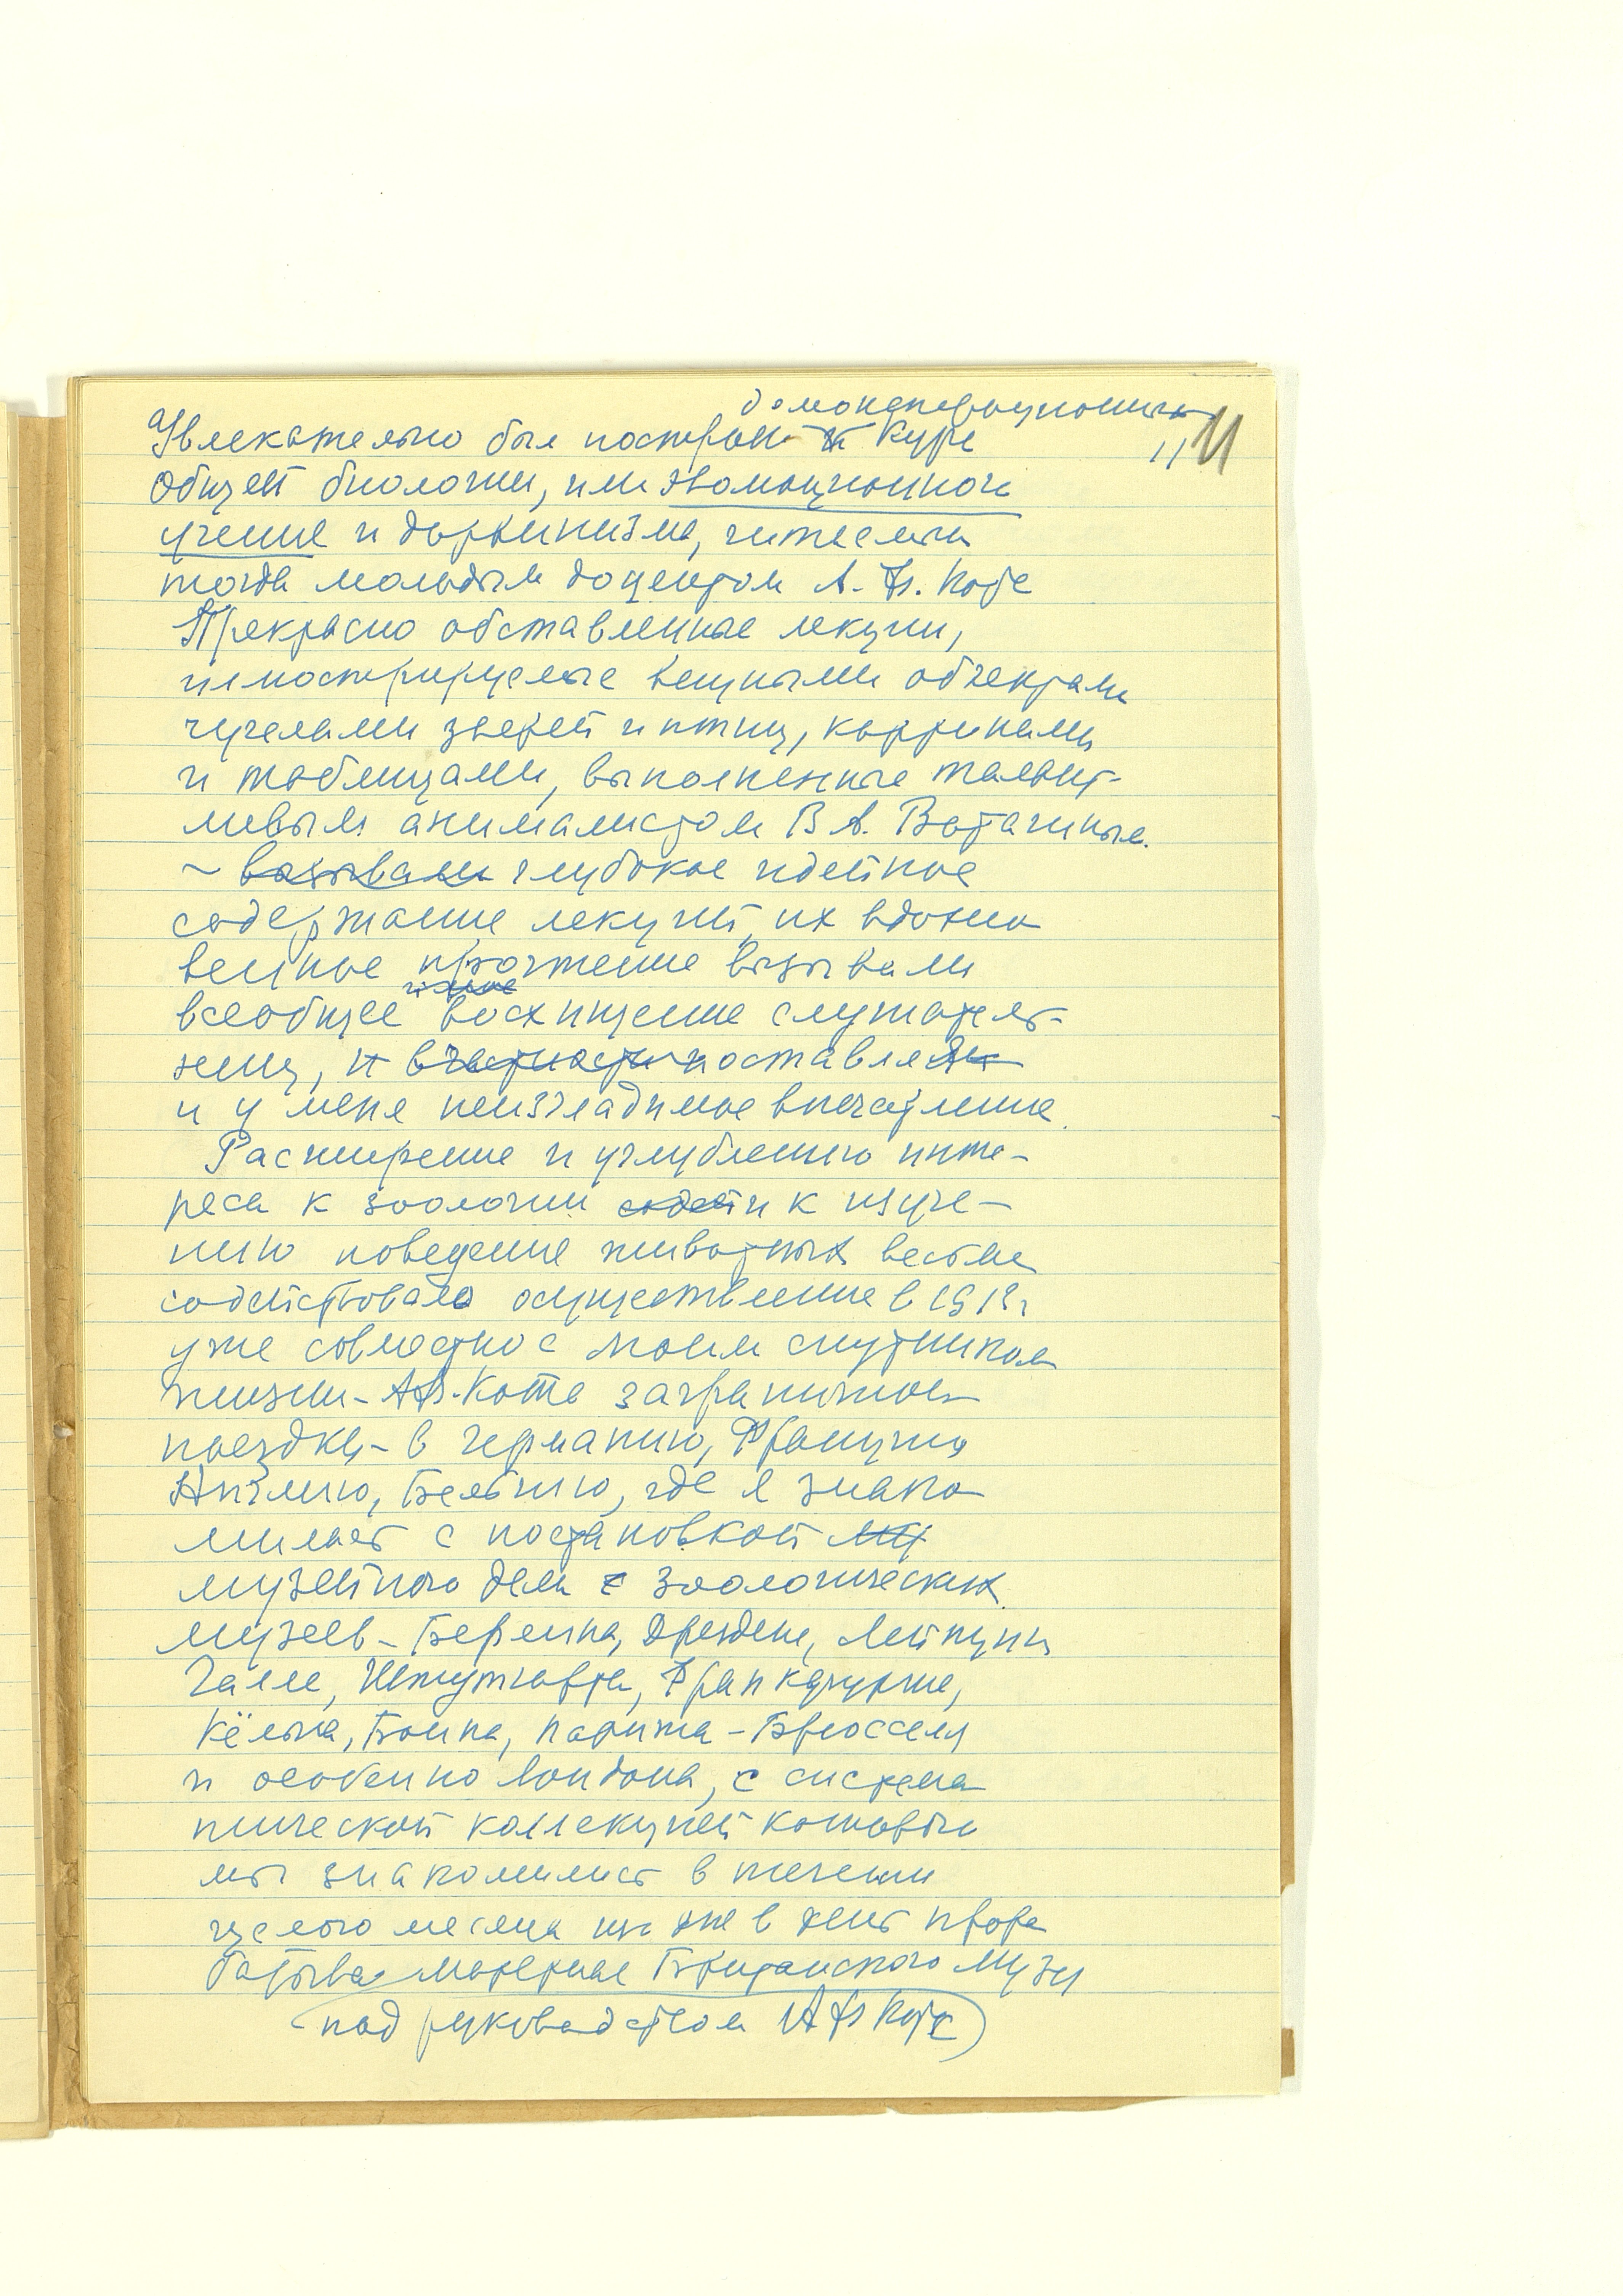 демонстрационный
11 11
Увлекательно был построен курс
Общей биологии, или эволюционного
учения и дарвинизма, читаемый
тогда молодым доцентом А. Ф. Котс
Прекрасно обставленные лекции,
иллюстрируемые вещными объектами
чучелами зверей и птиц, картинами
и таблицами, выполненные талант-
ливым анималистом В А. Ватагиным.
~ вызывали глубокое идейное
содержание лекций, их вдохно
венное прочтение вызывали
всеобщее восхищение слушатель-
ниц, и в частности оставляли
и у меня неизгладимое впечатление.
Расширению и углублению инте-
реса к зоологии и к изуче-
нию поведения животных весьма
содействовало осуществление в 1913г
уже совместно с моим спутником
жизни - АФ. Котс заграничной
поездки - в Германию, Францию
Англию, Бельгию, где я знако
милась с постановкой
музейного дела с зоологических
музеев - Берлина, Дрездена, Лейпцига
Галле, Штутгарта, Франкфурта,
Кёльна, Бонна, Парижа - Брюсселя
и особенно Лондона, с система
тической коллекцией которого
мы знакомились в течении
целого месяца изо дня в день прора
батывая материал Британского Музея
(под руководством АФ Котс)